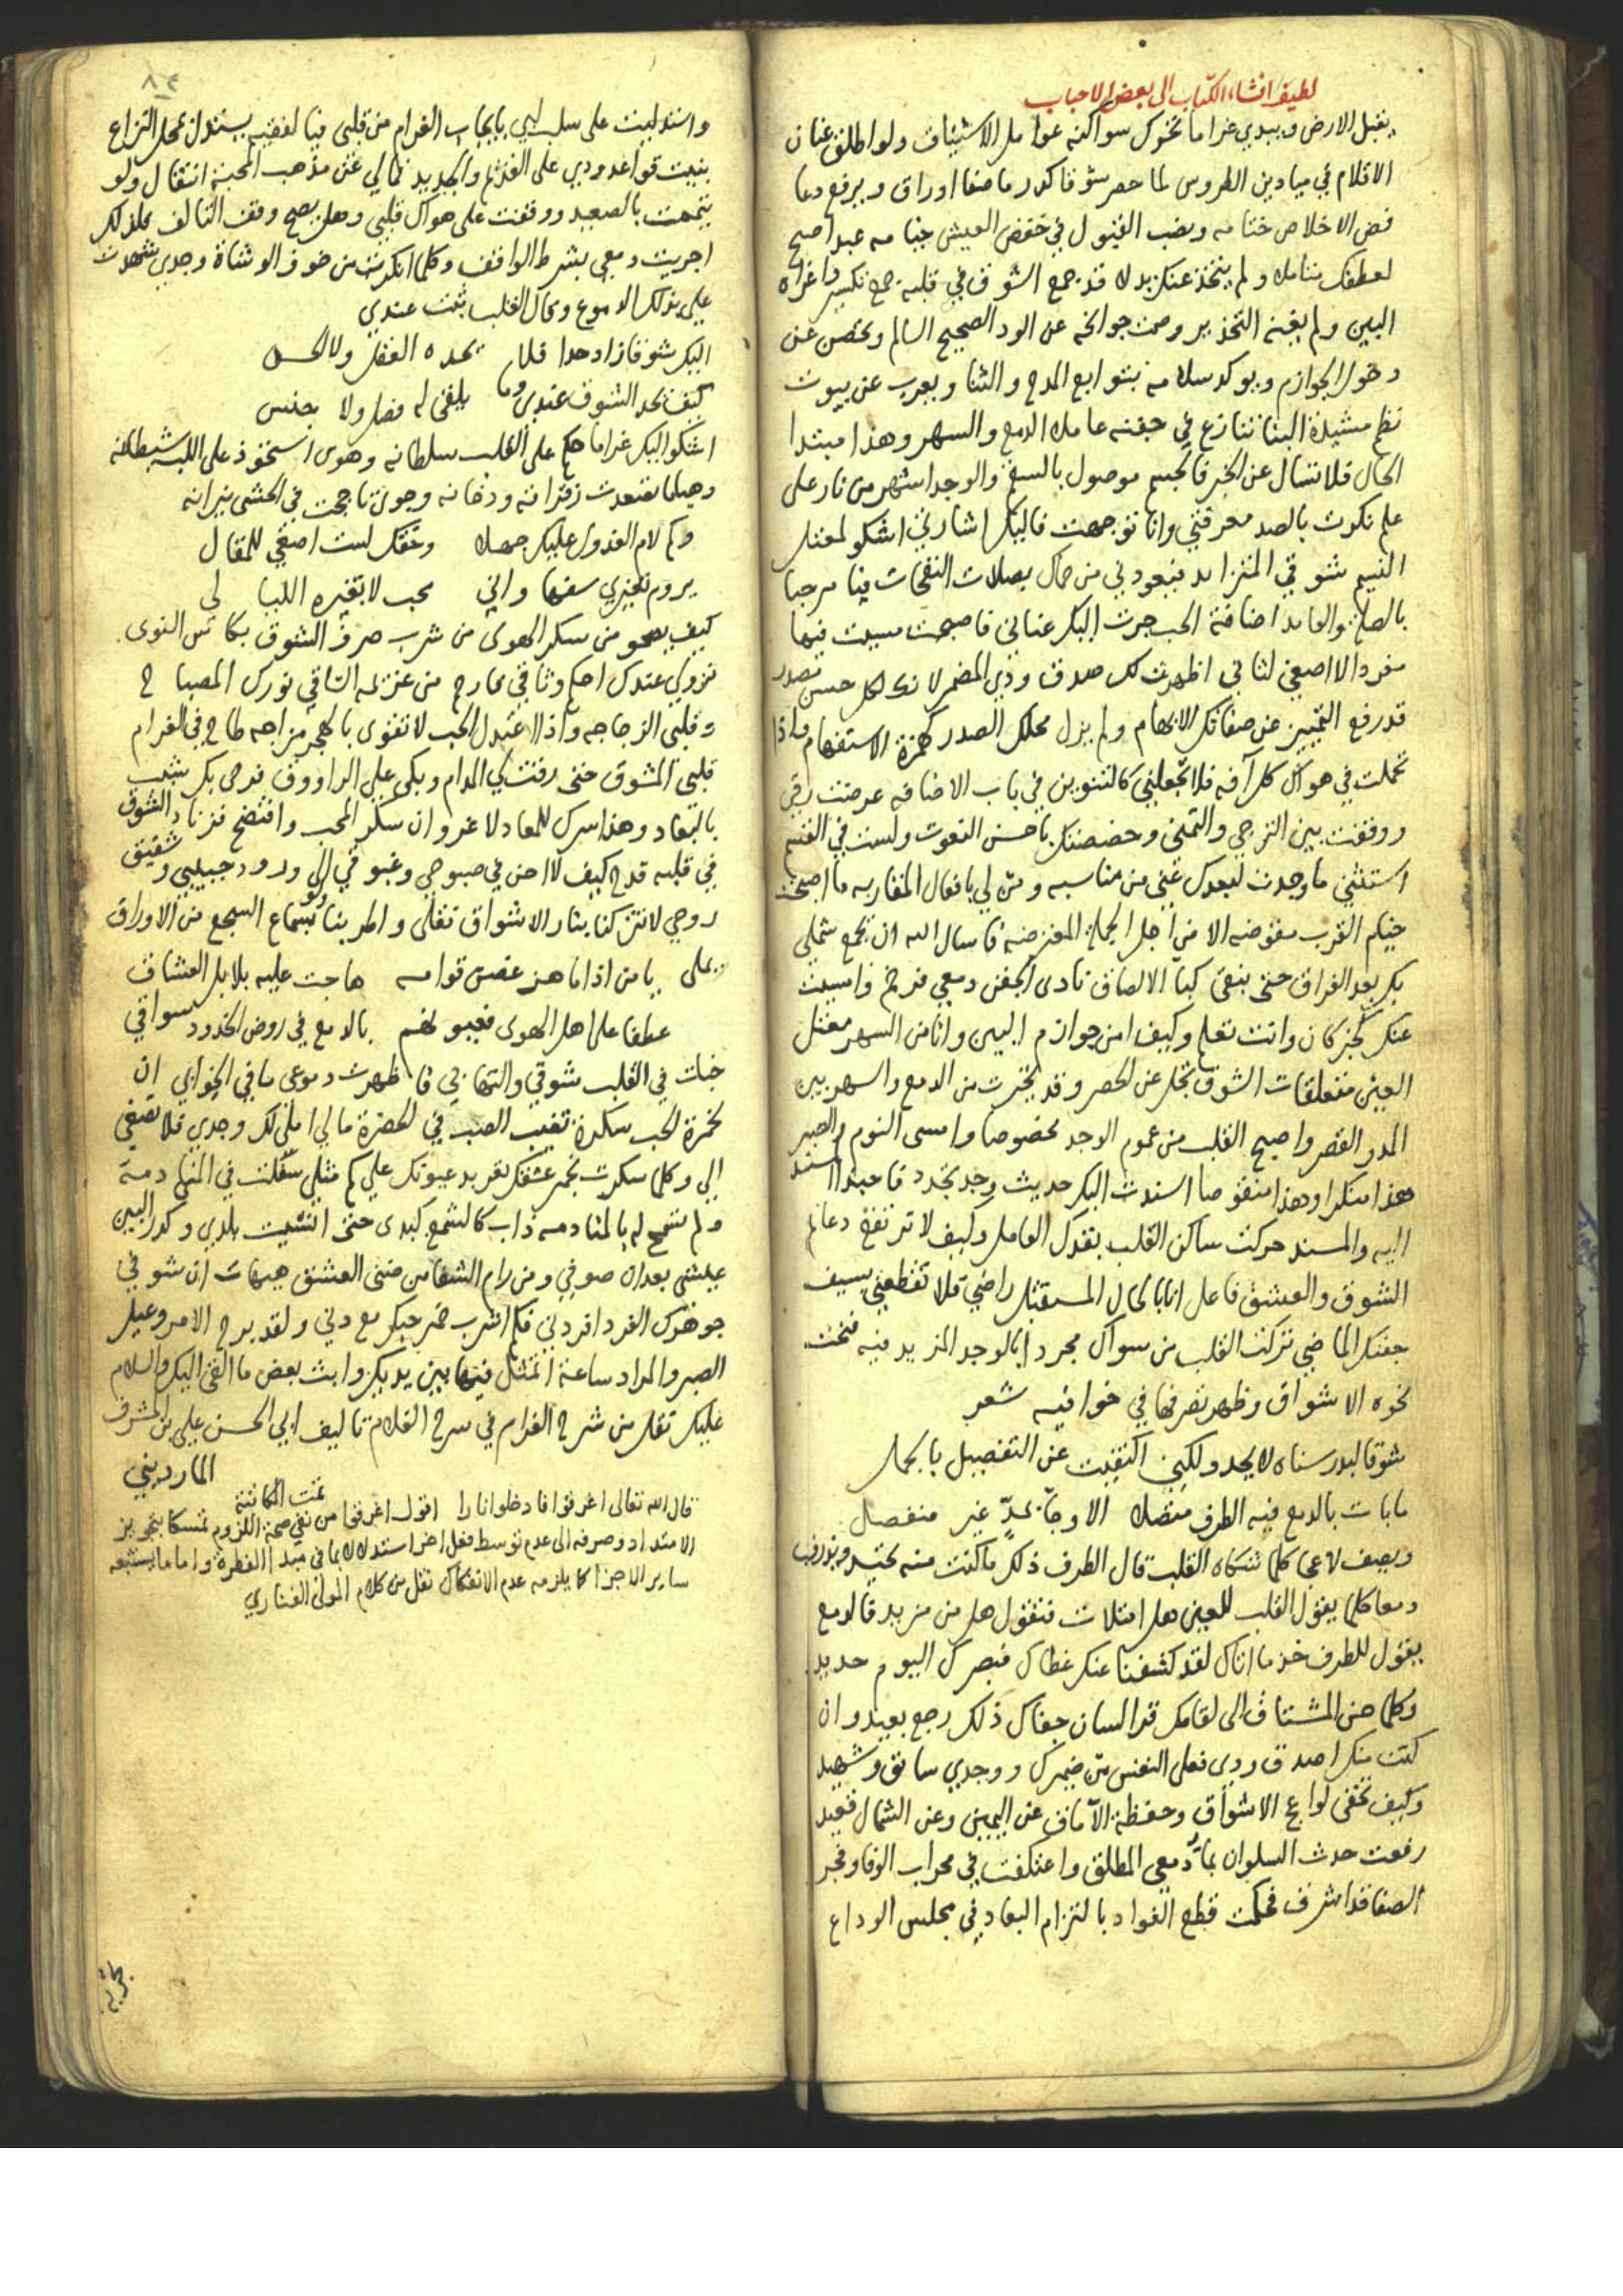 لطيفة انشاء الكتاب الى بعض الاحباب
يقبل الارض ويبدي غراما تحرك سواكنه عوامل الاشتياق ولو اطلق عنان
الاقلام في ميادين الطروس لما حصر شوقا كدر ما صفا اوراق ويرفع دعا
فض الاخلاص ختامه ونصب القبول في خفض العيش خيامه عبد اصبح
لعطفك متاملا ولم يتخذ عنك بدلا قد جمع الشوق في قلبه جمع تكسير واغراه
البين ولم يفته التحذير وصمت جوانحه عن الود الصحيح السالم وتحصن عن
دخول الجوازم ويوكد سلامه بتوابع المدح والثنا ويعرب عن بيوت
نظم مشيدة البنا تنازع في جفنه عاملا الدمع والسهر وهذا مبتدا
الحال فلا تسال عن الخبر فالجسم موصول بالسقم والوجد اشهر من نار على
علم نكرت بالصد معرفتي وانا توجهت فاليك اشارتي اشكو لمعتل
النسيم شوقي المتزايد فيعود لي من حماك بصلات النفحات فيا مرحبا
بالصلة والعايد اضافة الحب جرت اليك عناني فاصبحت مسيت فيها
مفردا لا اصغي لثاني اظهرت لك صدق ودي المضمر لانك لكل حسن مصدر
قد رفع التمييز عن صفاتك الابهام ولم يزل محلك الصدر كهمزة الاستفهام واذا
تحملت في هواك كل آفة فلا تجعلني كالتنوين في باب الاضافه عرضت رقي
ووقفت بين الترجي والتمني وخصصتك باحسن النعوت ولست في القسم
استثني ما وجدت لبعدك عني من مناسبه ومن لي بافعال المقاربه ما اصبحت
خيام القرب مقوضه الا من اجل الجملة المعترضه فاسال الله ان يجمع شملي
بك بعد الفراق حتى يبقى كباء الالصاق نادى الجفن دمعي فرخم وامسيت
عنك كخبر كان وانت تعلم وكيف امن جوازم البين وانا من السهر معتل
العين متعلقات الشوق تجل عن الحصر وقد تحيرت من الدمع والسهر بين
المد والقصر واصبح القلب من عموم الوجد مخصوصا وامسى النوم والصبر
هذا منكرا وهذا منقوصا اسندت اليك حديث وجد تجدد فاحبذا المسند
اليه والمسند حركت ساكن القلب بقدك العامل وكيف لا ترتفع دعائم
الشوق والعشق فاعل انا بالحال المستقبل راضي فلا تقطعني بسيف
جفنك الماضي تركت القلب من سواك مجردا بالوجد المزيد فيه فنحت
نحوه الاشواق وظهر تصرفها في خوافيه شعر
شوقا لبدر سناه لا يحد ولكني اكتفيت عن التفصيل بالجمل
ما بات بالدمع فيه الطرف متصلا الا وجاء بحد غير منفصل
ويصف لاعجا كلما شكاه القلب قال الطرف ذلك ما كنت منه تحيد ويذرف
دمعا كلما يقول القلب للعين هل امتلات فتقول هل من مزيد فالدمع
يقول للطرف خذ ما اتاك لقد كشفنا عنك غطاك فبصرك اليوم حديد
وكلما حن المشتاق الى لقاءك قرا لسان جفاك ذلك رجع بعيد وان
كنت منكرا صدق ودي فعلى النفس من ضميرك ووجدي سائق وشهيد
وكيف تخفى لواعج الاشواق وحفظة الآماق عن اليمين وعن الشمال قعيد
رفعت حدث السلوان بماء دمعي المطلق واعتكفت في محراب الوفا وفجر
الصفا قد اشرق فحكمت قطع الفواد بالتزام البعاد في مجلس الوداع
٨٣
واستدليت على سلب لبي بايجاب الغرام من قلبي فيا لفقيه يستدل بمحل النزاع
بنيت قواعد ودي على القديم والجديد فمالي عن مذهب المحبة انتقال ولو
تيممت بالصعيد ووقفت على هواك قلبي وهل يصح وقف التالف فلذلك
اجريت دمعي بشرط الواقف وكلما انكرت من خوف الوشاة وجدي شهدت
علي بذلك الدموع وبحال القلب ثبت عندي
اليك شوقا زاد حدا فلا يحده العقل ولا الحس
كيف يحد الشوق عندي وما يلقى له فصل ولا جنس
اشكو اليك غراما حكم على القلب سلطانه وهوى استحوذ على اللب شيطانه
وهياما تصعدت زفراته ودخانه وجوى تاججت في الحشى نيرانه
وكم لام العذول عليك جهلا وحقك لست اصغي للمقال
يروم تغيري سفها واني محب لا تغيره الليالي
كيف يصحو من سكر الهوى من شرب صرف الشوق بكاس النوى
نزولي عندك احكم وثاقي بمارج من عنزلمه الساقي نورك المصباح
وقلبي الزجاجه واذا اعتدل الحب لا تقوى بالهجر مزاجه طاح في الغرام
قلبي المشوق حتى رقت لي المدام وبكى علي الراووق فرحي بك شيب
بالبعاد وهذا سرك للمعاد لا غرو ان سكر المحب وافتضح فزناد الشوق
في قلبه قدح كيف لا احن في صبوحي وغبوقي الى ورود حبيبي وشقيق
روحي لا تتركنا بنار الاشواق نقلى واطربنا ولو بسماع السجع من الاوراق
ويملى يا من اذا ما هز غصن قوامه هاجت عليه بلابل العشاق
عطفا على اهل الهوى فعيونهم بالدمع في روض الخدود سواقي
خبات في القلب شوقي والتهابي فاظهرت دموعي ما في الخوابي ان
لخمرة الحب سكرة تغيب الصب في الحضرة مالي املي لك وجدي فلا تصغي
الي وكلما سكرت بخمر عشقك تعربد عيونك علي كم مثلي سفكت في المنها دمه
ولم تسمح له بالمنادمه ذاب كالشمع كبدي حتى انثنيت بلدي وكدر البين
عيشي بعد ان صوفي ومن رام الشفا من متى العشق هيهات ان شوقي
جوهرك الفرد افردني فكم اشرب خمر حبك مع دني ولقد برح الامر وعيل
الصبر والمراد ساعة اتمثل فيها بين يديك وابث بعض ما القى اليك والسلام
عليك تقل من شرح الغرام في سرح الغلام تاليف ابي الحسن علي بن المشرف
المارديني
تمت المكاتبة
قال الله تعالى اغرقوا فادخلوا نارا اقول اغرقوا من نفي صحة اللزوم تمسكا بتجويز
الامتداد وصرفه الى عدم توسط فعل اخر استدلالا بما في مبدا الفطرة واما ما يستتبعه
ساير الاجزا كما يلزمه عدم الانفكاك نقل من كلام المولى الفناري